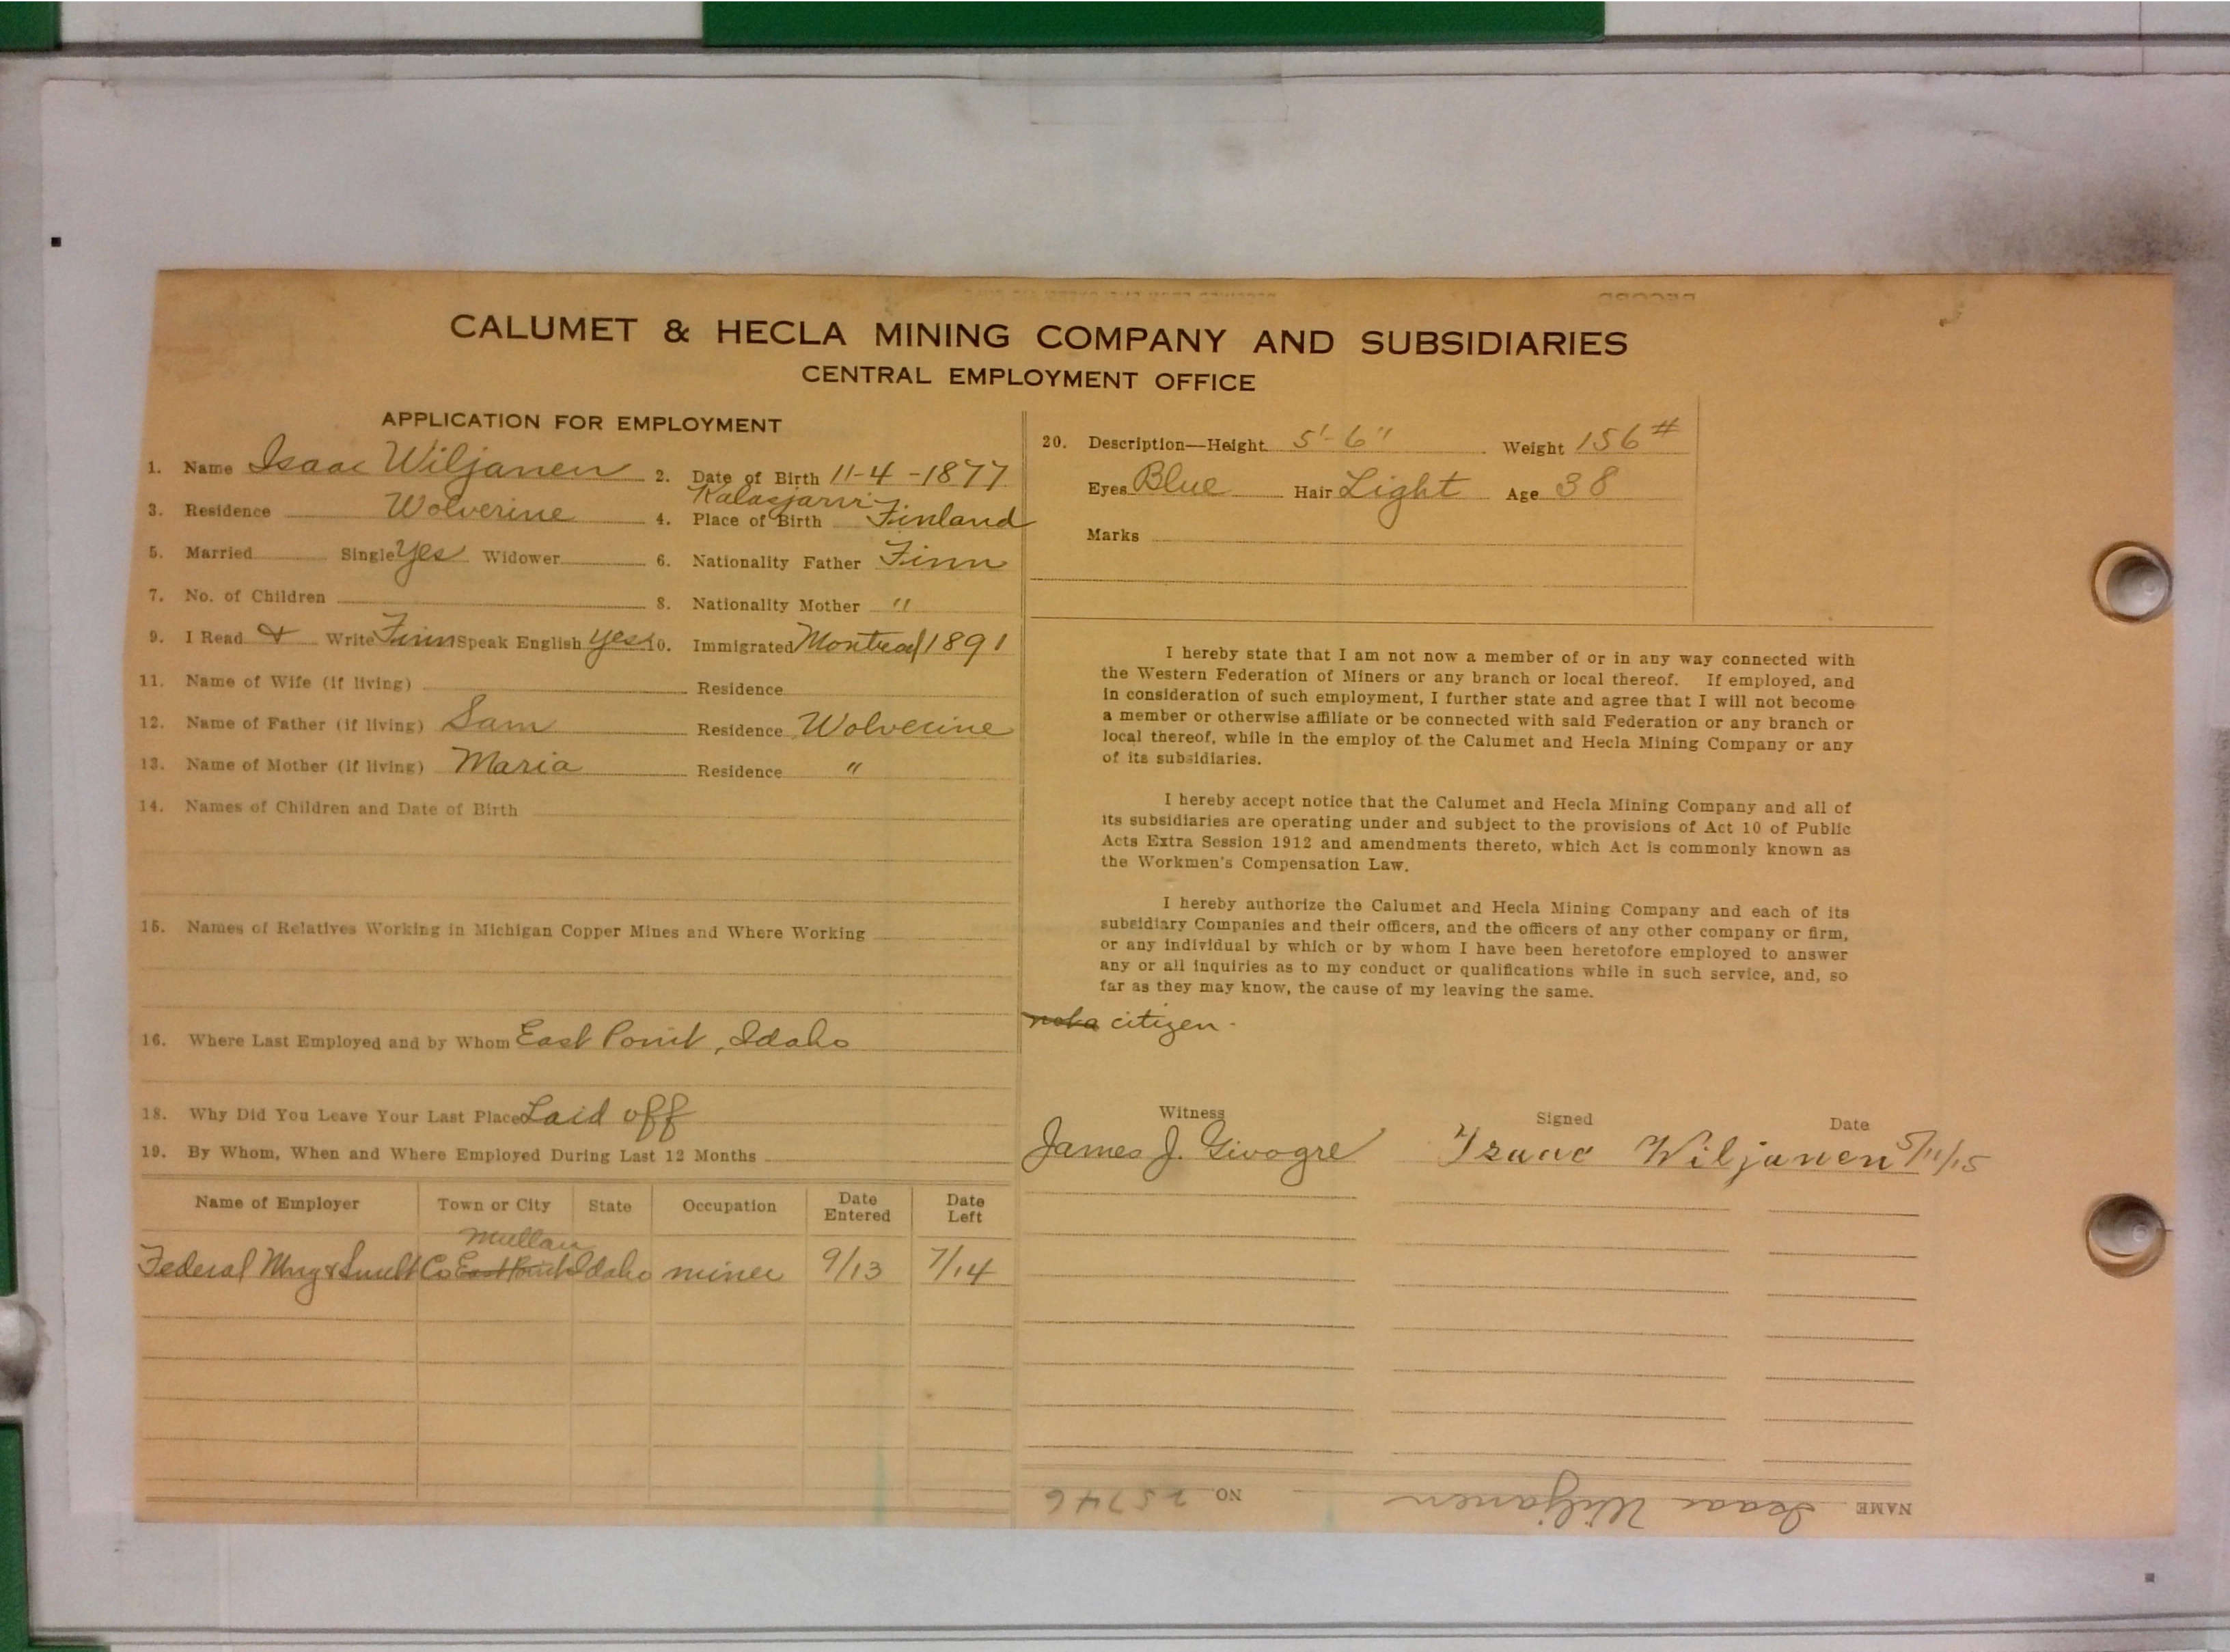 CALUMET & HECLA MINING COMPANY AND SUBSIDIARIES
CENTRAL EMPLOYMENT OFFICE
APPLICATION FOR EMPLOYMENT
1. Name Isaac Wiljanen 2. Date of Birth 11-4-1877
3. Residence Wolverine 4. Place of Birth Kalasjarvi Finland
5. Married Single Yes Widower 6. Nationality Father Finn
7. No. of Children 8. Nationality Mother "
9. I Read & Write Finn Speak English Yes 10. Immigrated Montreal 1891
11. Name of Wife (if living) Residence
12. Name of Father (if living) Sam Residence Wolverine
13. Name of Mother (if living) Maria Residence "
14. Names of Children and Date of Birth
15. Names of Relatives Working in Michigan Copper Mines and Where Working
16. Where Last Employed and by Whom East Point, Idaho
18. Why Did You Leave Your Last Place Laid off
19. By Whom, When and Where Employed During Last 12 Months
Name of Employer Town or City State Occupation Date Entered Date Left
Mullan
Federal Mng & Smelt Co East Point Idaho miner 9/13 7/14
20. Description—Height 5'-6" Weight 156#
Eyes Blue Hair Light Age 38
Marks
I hereby state that I am not now a member of or in any way connected with
the Western Federation of Miners or any branch or local thereof. If employed, and
in consideration of such employment, I further state and agree that I will not become
a member or otherwise affiliate or be connected with said Federation or any branch or
local thereof, while in the employ of the Calumet and Hecla Mining Company or any
of its subsidiaries.
I hereby accept notice that the Calumet and Hecla Mining Company and all of
its subsidiaries are operating under and subject to the provisions of Act 10 of Public
Acts Extra Session 1912 and amendments thereto, which Act is commonly known as
the Workmen's Compensation Law.
I hereby authorize the Calumet and Hecla Mining Company and each of its
subsidiary Companies and their officers, and the officers of any other company or firm,
or any individual by which or by whom I have been heretofore employed to answer
any or all inquiries as to my conduct or qualifications while in such service, and, so
far as they may know, the cause of my leaving the same.
not a citizen.
Witness Signed Date
James J. Givogre Isaac Wiljanen 5/11/15
NAME Isaac Wiljanen NO. 25746